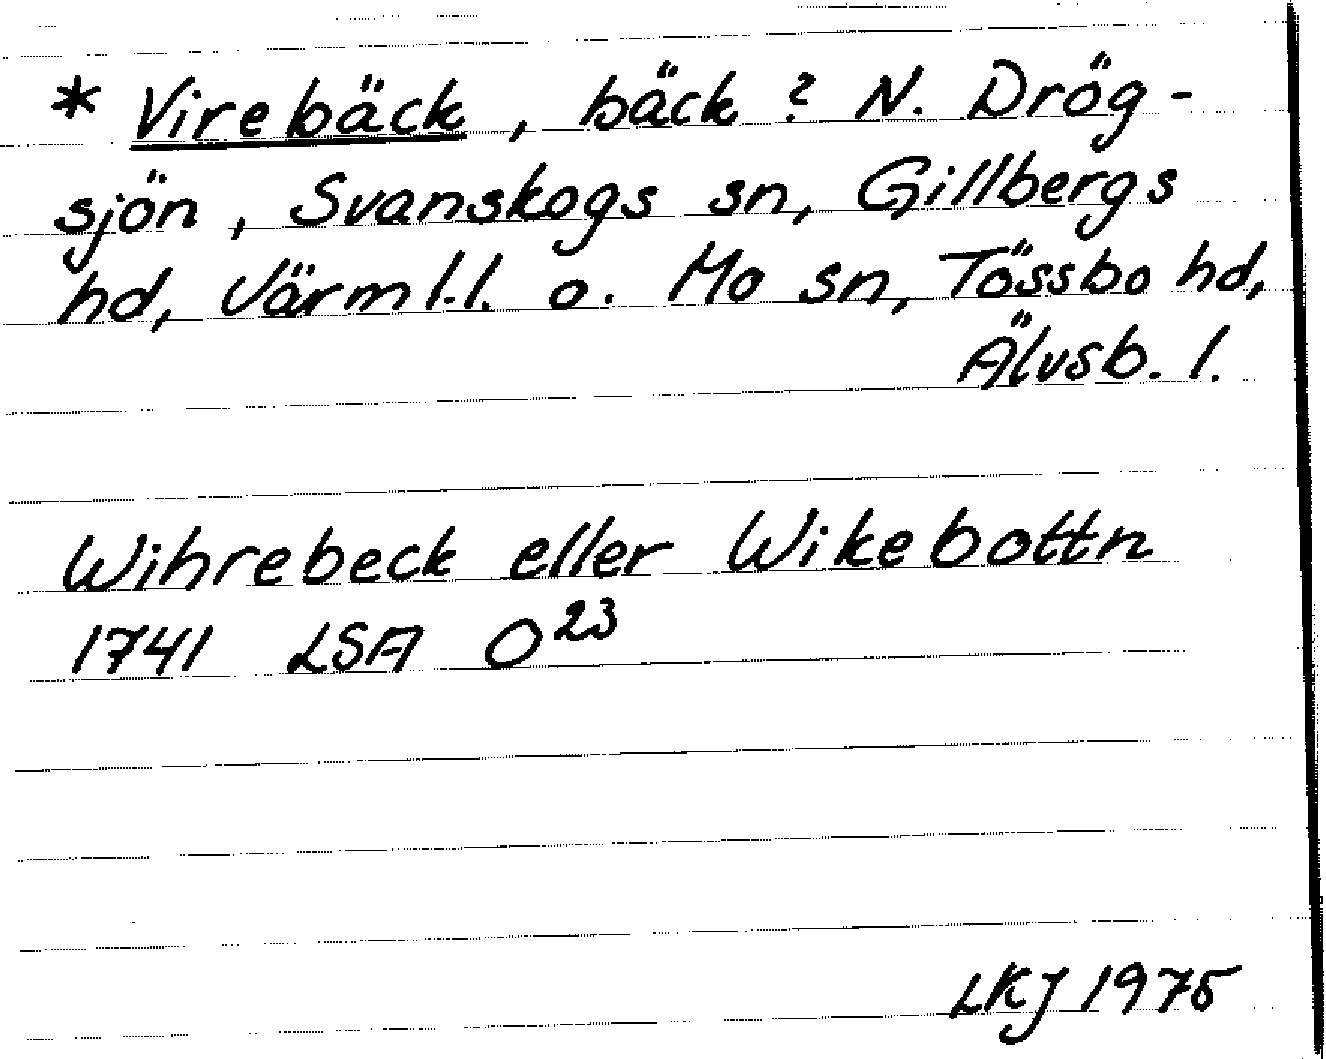 * Virebäck, bäck? N. Drög-
sjön, Svanskogs sn, Gillbergs
hd, Värml.l. o. Mo sn, Tössbo hd,
Älvsb. l.
Wihrebeck eller Wikebottn
1741 LSA O23
LKJ 1975